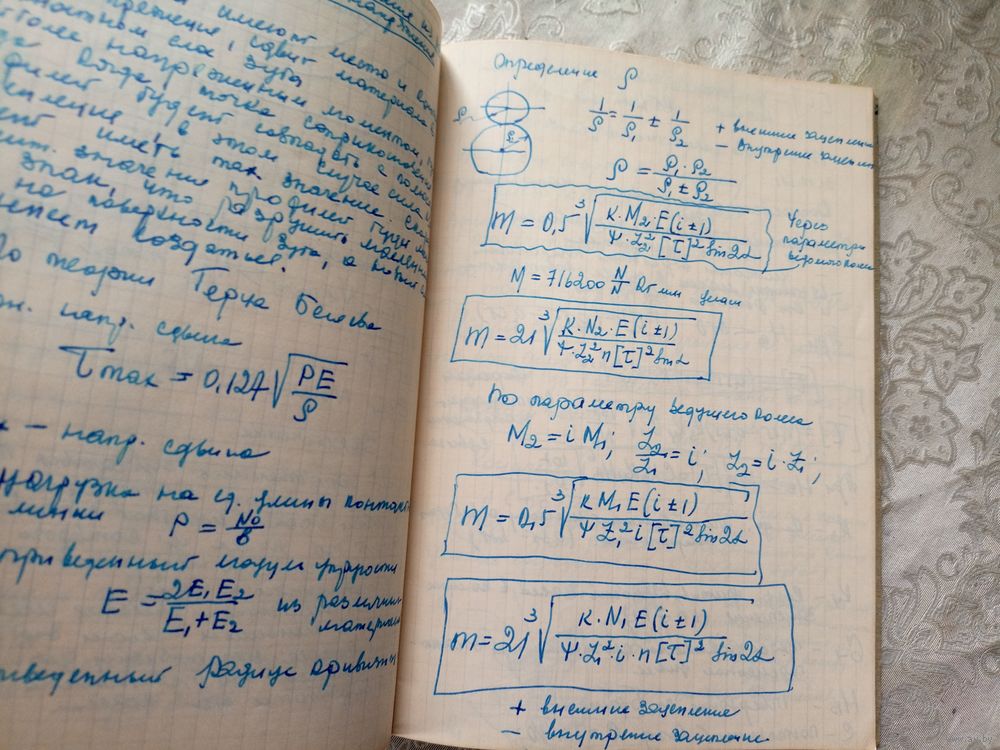 имеют место и
сдвиг материала
ностном слое зуба
более напряженным моментом,
когда точка соприкосновения
филей будет совпадать с полюсом
в этом случае сила
иметь max значение.
значения профилей
знак, что разрушить
на поверхности зуба, а
создаться.
По теории Герца Беляева
напр. сдвига
τmax = 0,127 √(PE/ρ)
– напр. сдвига
Нагрузка на ед. длины контакт.
линии P = No/b
приведенный модуль упругости
E = 2E₁E₂/(E₁+E₂) из различных
материал
приведенный радиус кривизны
Определение ρ
1/ρ = 1/ρ₁ ± 1/ρ₂
+ внешнее зацепление
– внутренне зацепл
ρ = ρ₁·ρ₂/(ρ₁±ρ₂)
m = 0,5 ³√(K·M₂·E(i±1)/(Ψ·Z₂²[τ]²sin2α))
Через
параметры
ведомого колеса
M = 716200 N/n
m = 21 ³√(K·N₂·E(i±1)/(Ψ·Z₂²n[τ]²sin2α))
По параметру ведущего колеса
M₂ = i M₁; Z₂/Z₁ = i; Z₂ = i·Z₁;
m = 0,5 ³√(K M₁E(i±1)/(Ψ Z₁²i[τ]²sin2α))
m = 21 ³√(K·N₁E(i±1)/(Ψ·Z₁²·i·n[τ]²sin2α))
+ внешнее зацепление
– внутренне зацепление.